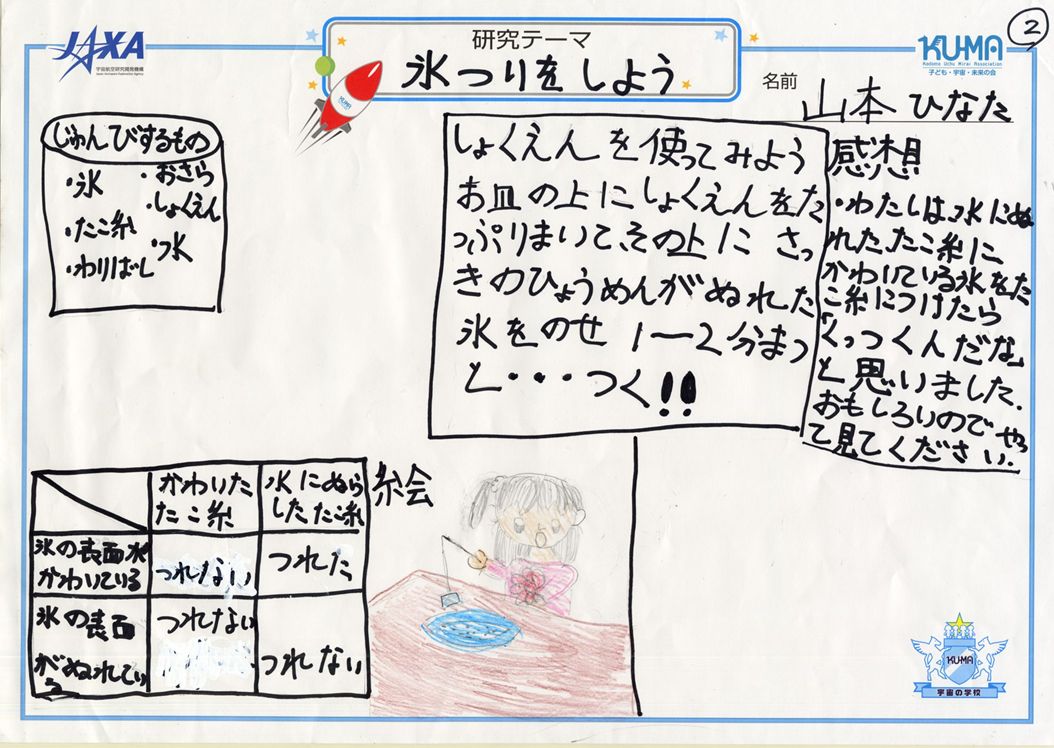 JAXA
宇宙航空研究開発機構
Japan Aerospace Exploration Agency
研究テーマ
氷つりをしよう
KUMA
KUMA
Kodomo Uchu Mirai Association
子ども・宇宙・未来の会
2
名前 山本ひなた
じゅんびするもの
・氷 ・おさら
・しょくえん
・たこ糸
・水
・わりばし
しょくえんを使ってみよう
お皿の上にしょくえんをた
っぷりまいて、その上に さっ
きのひょうめんがぬれた
氷をのせ 1ー2分まつ
と・・・つく!!
感想
・わたしは水にぬ
れたたこ糸に
かわいている氷をた
こ糸につけたら
「くっつくんだな」
と思いました.
おもしろいのでやっ
て見てください.
かわいた
たこ糸
水にぬら
したたこ糸
氷の表面水
かわいている
つれない
つれた
氷の表面
がぬれてい
る
つれない
つれない
絵
KUMA
宇宙の学校